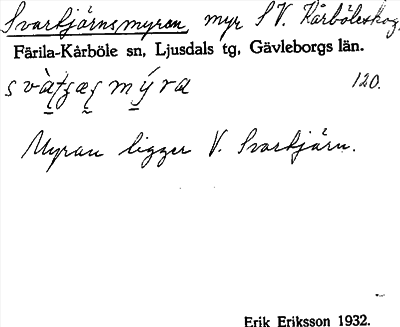 Svartjärnsmyren, myr S V. Kårböleskog.
Färila-Kårböle sn, Ljusdals tg, Gävleborgs län.
120.
Myran ligger V. Svartjärn.
Erik Eriksson 1932.